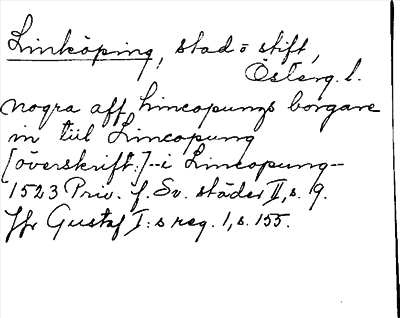 Linköping, stad o stift,
Österg. l.
nogra aff Lincopungs borgare
in till Lincopung
[överskrift:]--i Lincopung--
1523 Priv. f. Sv. städer II, s. 19.
Jfr Gustaf I:s reg. 1, s. 155.